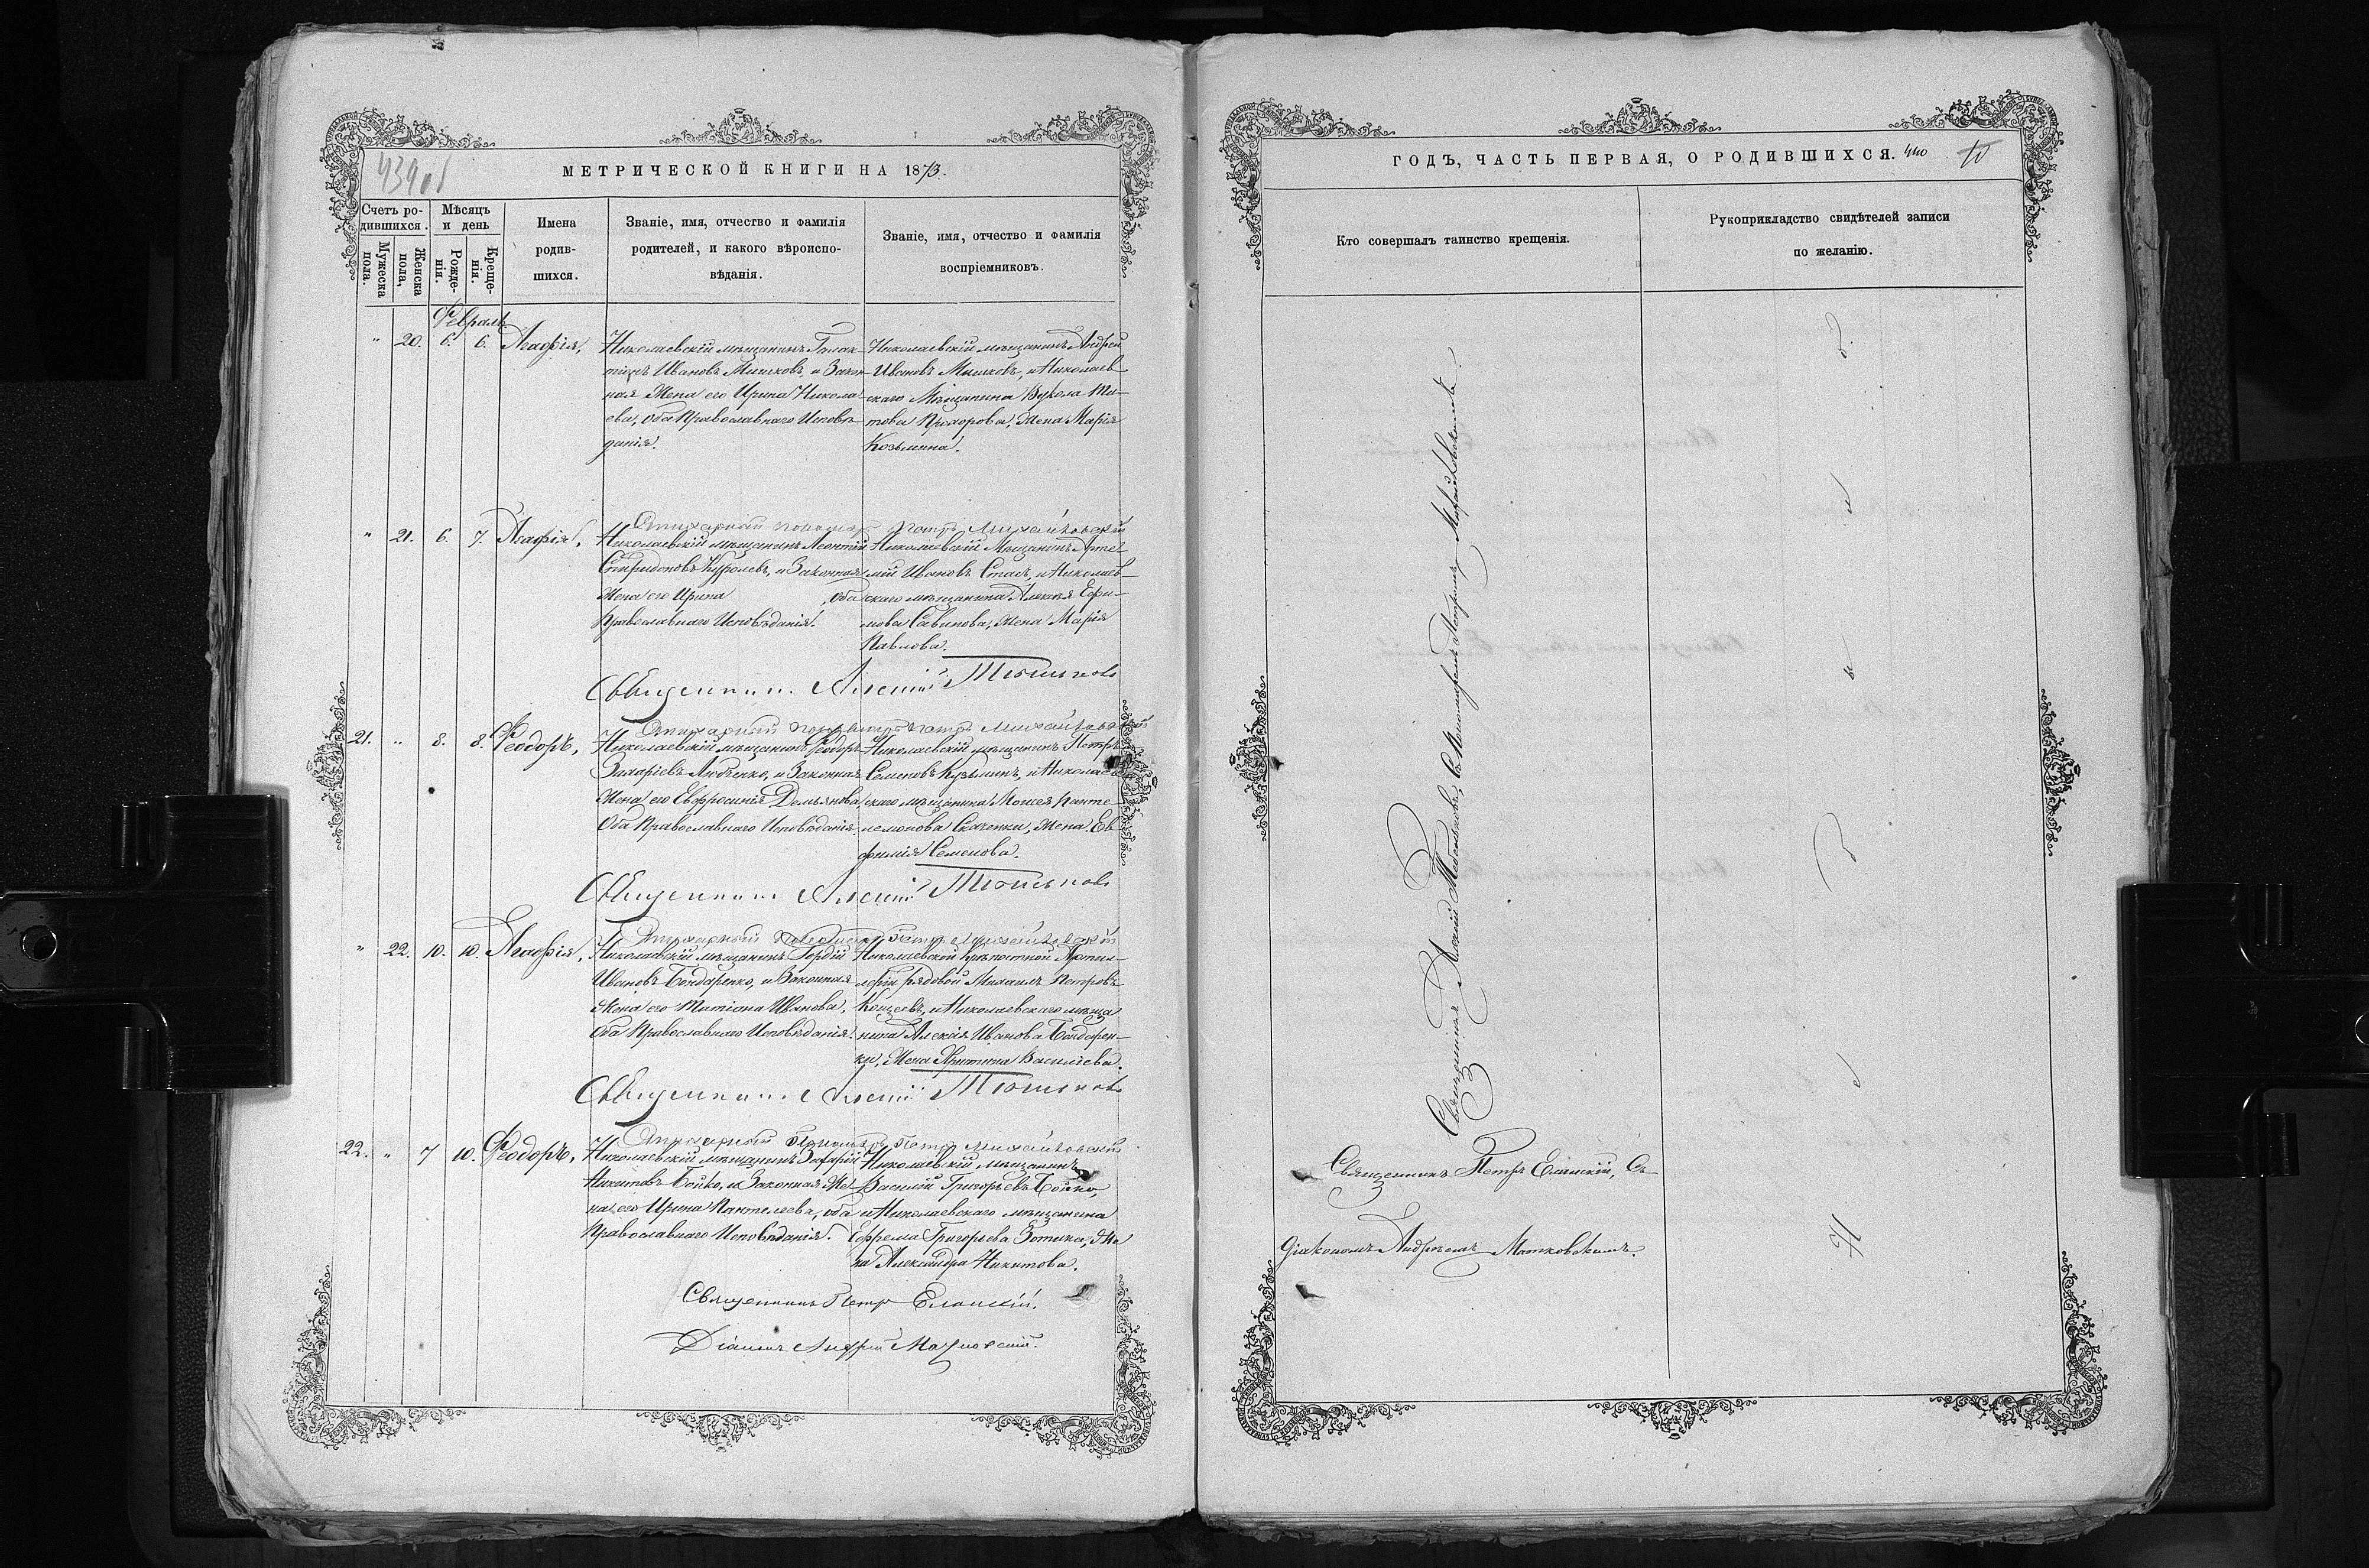 439об
МЕТРИЧЕСКОЙ КНИГИ НА 1873.
Счетъ ро-
дившихся.
Мужеска
пола.
Женска
пола,
Мѣсяцъ
и день
Рожде-
нія.
Креще-
нія.
Имена
родив-
шихся.
Званіе, имя, отчество и фамилія
родителей, и какого вѣроиспо-
вѣданія.
Званіе, имя, отчество и фамилія
воспріемниковъ.
Февраль
" 20. 6. 6. Агафія,
Николаевскій мѣщанинъ Галак-
тіонъ Ивановъ Мишковъ, и Закон-
ная Жена его Ирина Никола-
ева, оба Православнаго Исповѣ-
данія.
Николаевскій мѣщанинъ Андрей
Ивановъ Мишковъ, и Николаев
скаго Мѣщанина Вукола Ти-
това Прохорова, Жена Марія
Козьмина.
" 21. 6. 7. Агафія,
Стихарный пономарь Петръ Михайловскій
Николаевскій мѣщанинъ Леонтій
Спиридоновъ Журолевъ, и Законная
Жена его Ирина , оба
Православнаго Исповѣданія.
Николаевскій Мѣщанинъ Арте
мій Ивановъ Стась, и Николаев-
скаго мѣщанина Алексѣя Ефи-
мова Савинова, Жена Марія
Павлова.
Священникъ Алексій
21. " 8. 8. Феодоръ,
Стихарный пономарь Петръ Михайловскій
Николаевскій мѣщанинъ Феодоръ
Захаріевъ Любченко, и Законная
Жена его Евфросинія Демьянова
Оба Православнаго Исповѣданія.
Николаевскій мѣщанинъ Петръ
Семеновъ Кузьминъ, и Николаев
скаго мѣщанина Моисея Панте-
лемонова Скаченки, Жена Ев
фимія Семенова.
Священникъ Алексій
" 22. 10. 10. Агафія,
Стихарный пономарь Петръ Михайловскій
Николаевскій мѣщанинъ Гордій
Ивановъ Бондаренко, и Законная
Жена его Татіана Иванова,
Оба Православнаго Исповѣданія.
Николаевской Крѣпостной Артил-
леріи рядовой Михаилъ Петровъ
Кощеевъ, и Николаевскаго мѣща
нина Алексія Иванова Бондарен-
ки, Жена Христина Васильева.
Священникъ Алексій
22. " 7 10. Феодоръ,
Стихарный Пономарь Петръ Михайловскій
Николаевскій мѣщанинъ Захарій
Никитовъ Бойко, и Законная Же-
на его Ирина Пантелеева, оба
Православнаго Исповѣданія.
Николаевскій мѣщанинъ
Василій Григорьевъ Бойко,
и Николаевскаго мѣщанина
Ефрема Григорьева Зотика, Же
на Александра Никитова.
Священникъ Петръ Еланскій.
Діаконъ Андрей
ГОДЪ, ЧАСТЬ ПЕРВАЯ, О РОДИВШИХСЯ. 440
10
Кто совершалъ таинство крещенія.
Рукоприкладство свидѣтелей записи
по желанію.
Священникъ Алексій съ Пономаремъ Петромъ Михайловскимъ.
Священникъ Петръ Еланскій, Съ
діакономъ Андреемъ